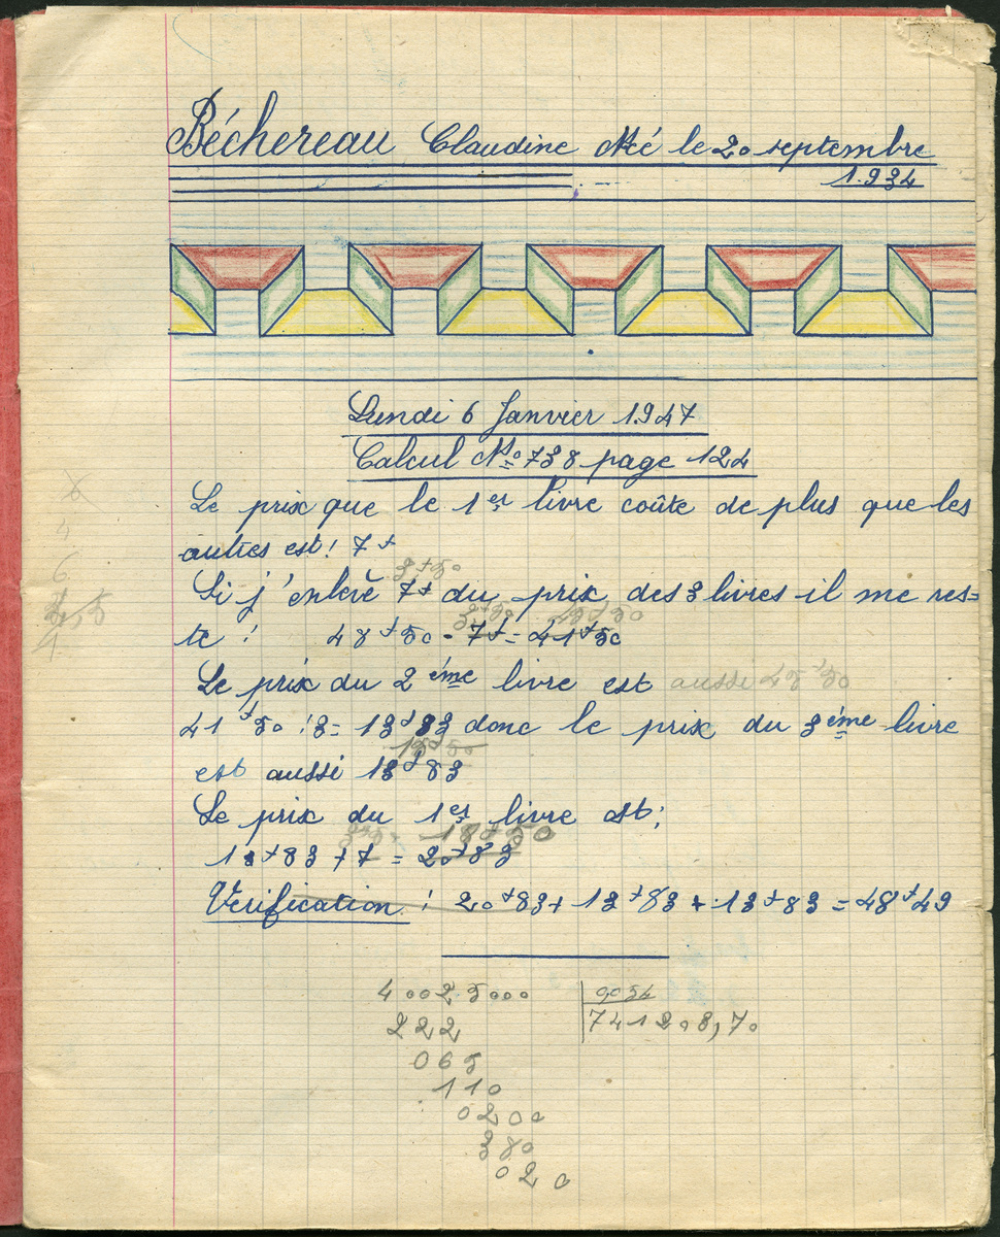 Béchereau Claudine Né le 20 septembre
1.934
Lundi 6 Janvier 1947
Calcul No 738 page 124
Le prix que le 1er livre coûte de plus que les
autres est: 7f
3f50
Si j'enlève 7f du prix des 3 livres il me res=
te : 48f50 - 7f = 41f50
Le prix du 2ème livre est aussi 45f50
41f50 : 3 = 13f83 donc le prix du 3ème livre
15f50
est aussi 13f83
Le prix du 1er livre est:
3f50 18f50
13f83 + 7 = 20f83
Vérification : 20f83 + 13f83 + 13f83 = 48f49
40025000 0054
222 741208,70
065
110
0200
380
020